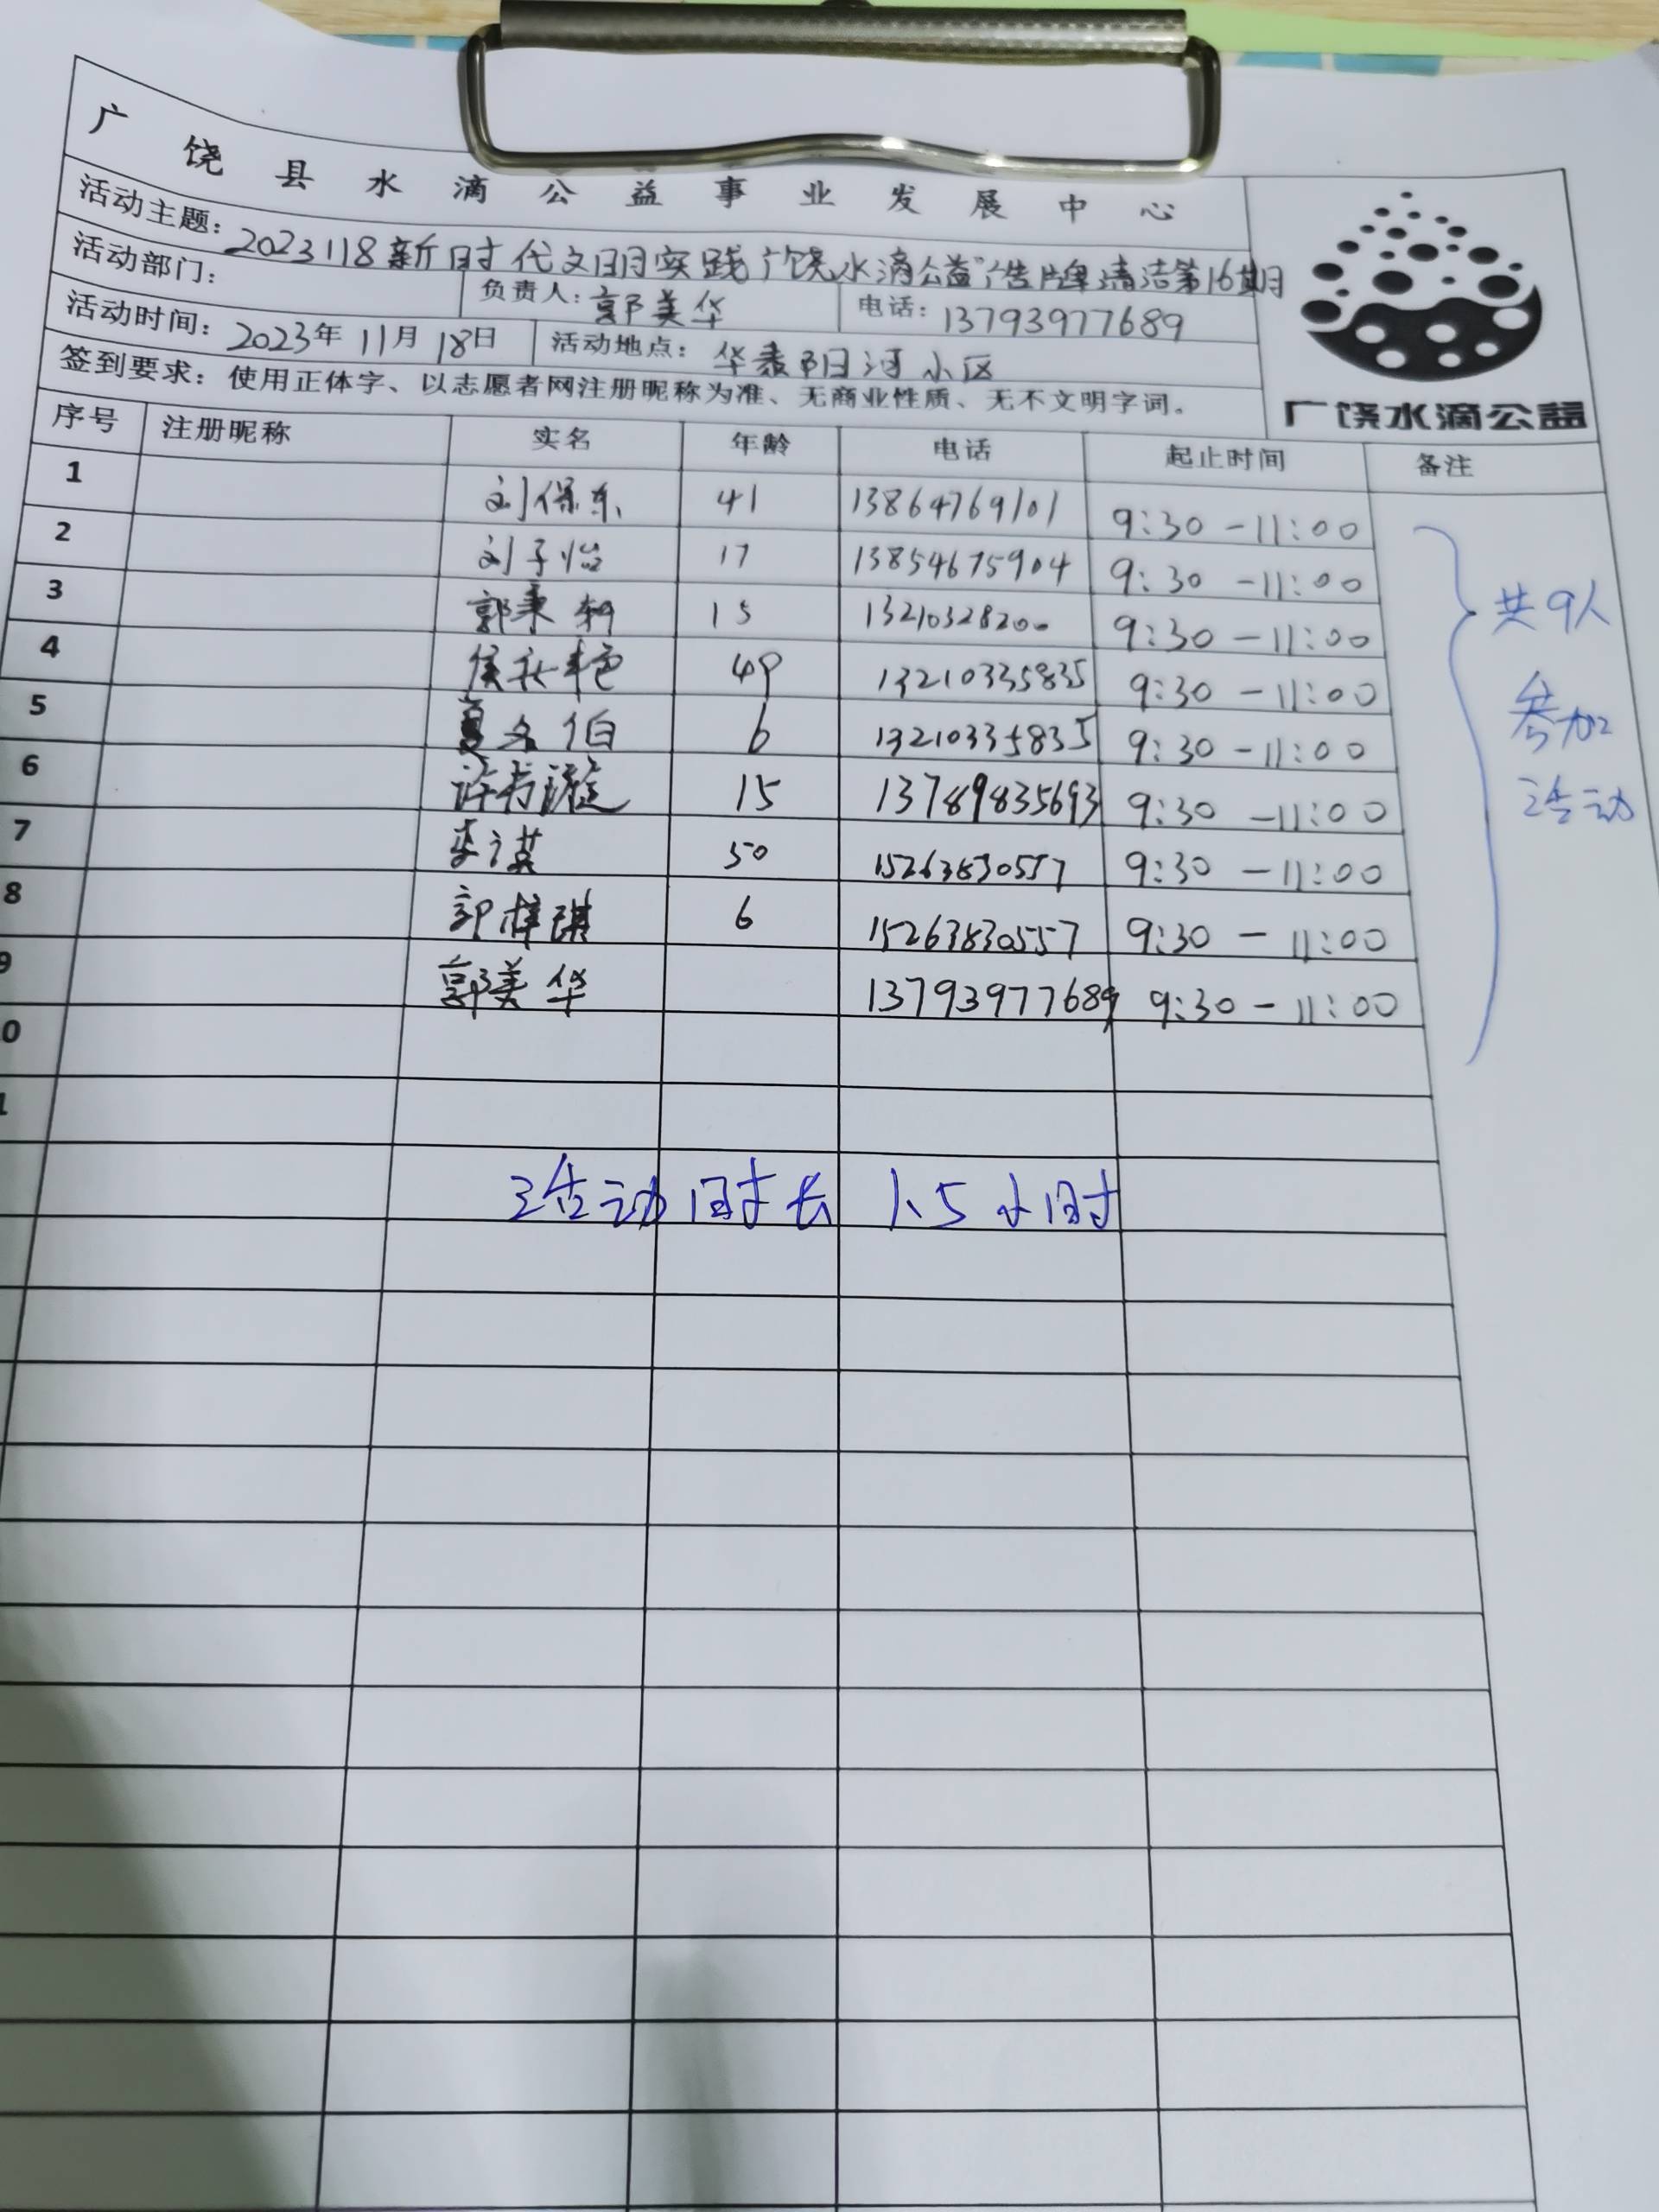 广饶县水滴公益事业发展中心
活动主题：2023118新时代文明实践广饶水滴公益"广告牌清洁第16期
活动部门： 负责人：郭美华 电话：13793977689
活动时间：2023年11月18日 活动地点：华泰阳河小区
签到要求：使用正体字、以志愿者网注册昵称为准、无商业性质、无不文明字词。
广饶水滴公益
序号 注册昵称 实名 年龄 电话 起止时间 备注
1 刘保东 41 13864769101 9:30-11:00
2 刘子怡 17 13854675904 9:30-11:00
3 郭秉轩 15 13210328200 9:30-11:00
4 49 13210335835 9:30-11:00
5 夏名伯 6 13210335835 9:30-11:00
6 许书 15 13789835693 9:30-11:00
7 李 50 15263830557 9:30-11:00
8 郭梓琪 6 15263830557 9:30-11:00
9 郭美华 13793977689 9:30-11:00
0
1
共9人
参加
活动
活动时长 1.5小时